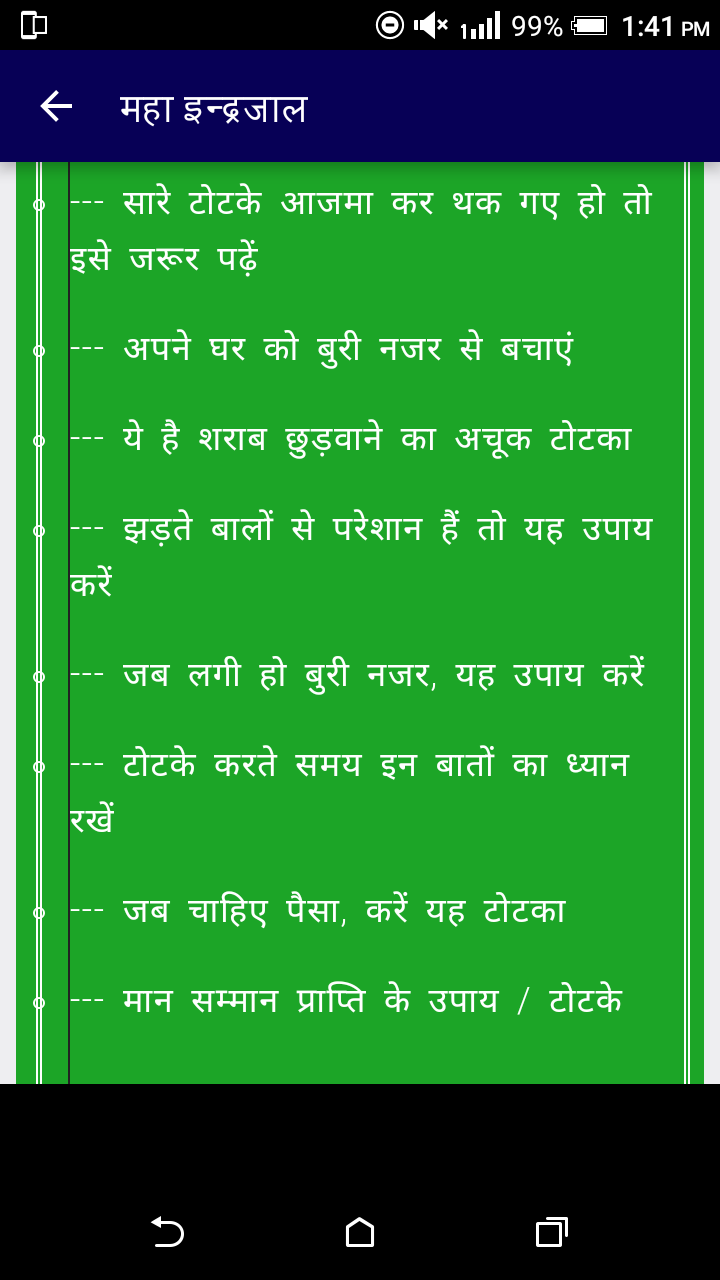 99% 1:41 PM
महा इन्द्रजाल
--- सारे टोटके आजमा कर थक गए हो तो
इसे जरूर पढ़ें
--- अपने घर को बुरी नजर से बचाएं
--- ये है शराब छुड़वाने का अचूक टोटका
--- झड़ते बालों से परेशान हैं तो यह उपाय
करें
--- जब लगी हो बुरी नजर, यह उपाय करें
--- टोटके करते समय इन बातों का ध्यान
रखें
--- जब चाहिए पैसा, करें यह टोटका
--- मान सम्मान प्राप्ति के उपाय / टोटके